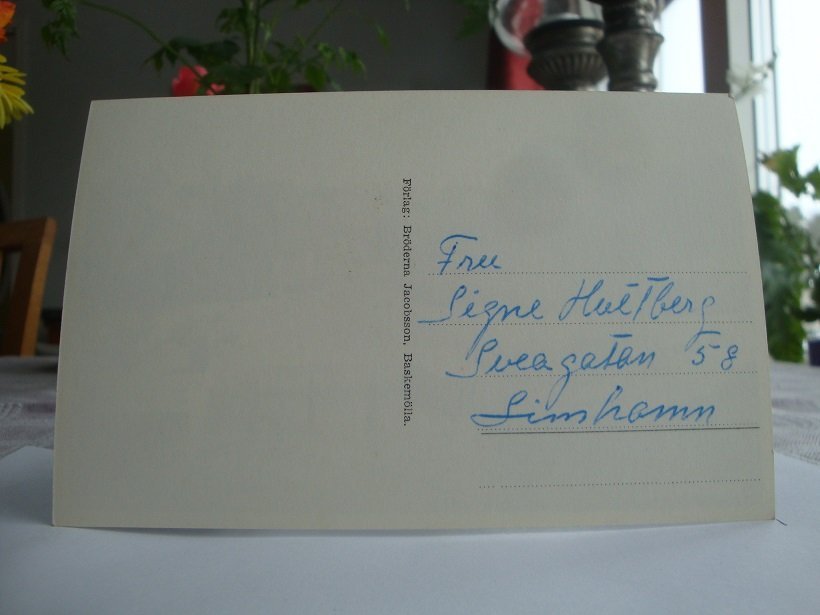 Förlag: Bröderna Jacobsson, Baskemölla.
Fru
Signe Hultberg
Sveagatan 58
Limhamn